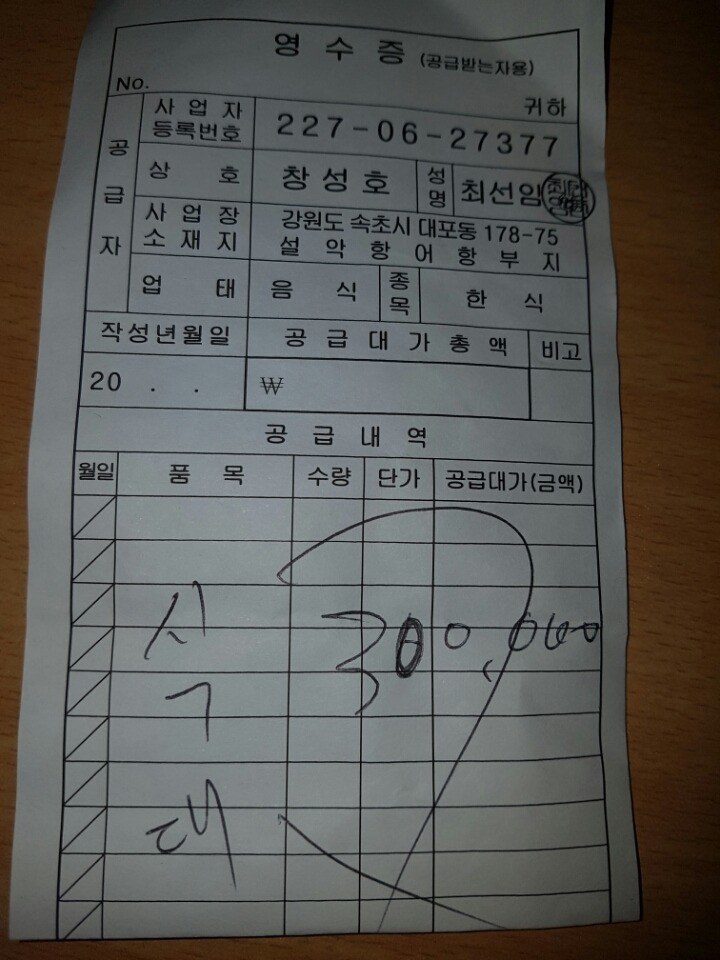 영 수 증 (공급받는자용)
No. 귀하
공급자
사업자등록번호 227-06-27377
상 호 창성호 성명 최선임
사업장소재지 강원도 속초시 대포동 178-75
설 악 항 어 항 부 지
업 태 음 식 종목 한 식
작성년월일 공 급 대 가 총 액 비고
20 . . ₩
공 급 내 역
월일 품 목 수량 단가 공급대가(금액)
식 300,000
대